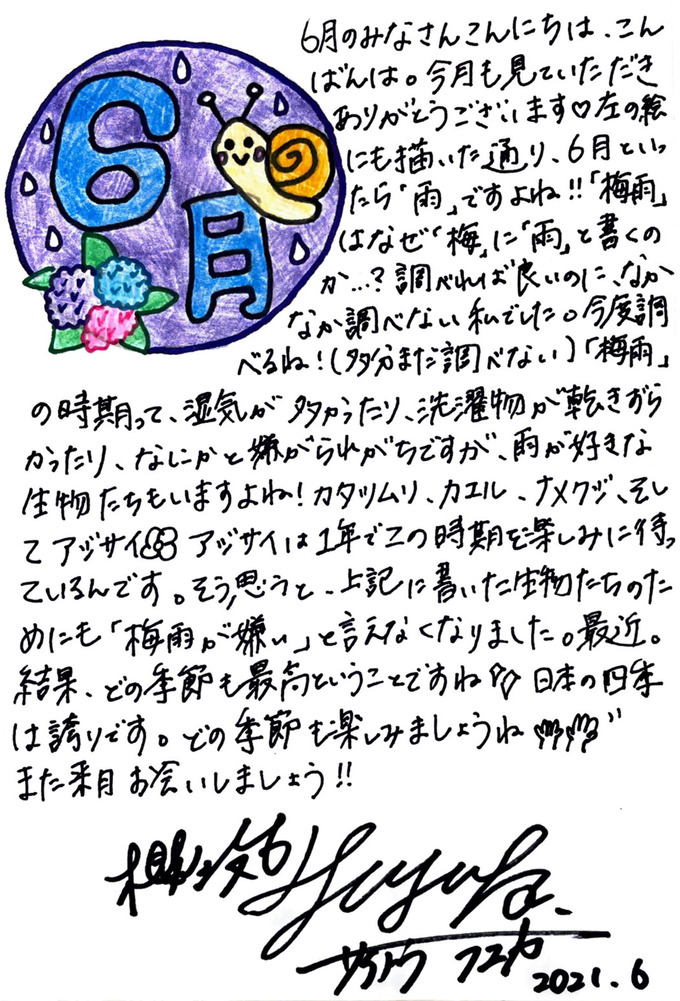 6月
6月のみなさんこんにちは、こん
ばんは。今月も見ていただき
ありがとうございます♡左の絵
にも描いた通り、6月といっ
たら「雨」ですよね!!「梅雨」
はなぜ「梅」に「雨」と書くの
か…?調べれば良いのに、なか
なか調べない私でした。今度調
べるね!(多分まだ調べない)「梅雨」
の時期って、湿気が多かったり、洗濯物が乾きづら
かったり、なにかと嫌がられがちですが、雨が好きな
生物たちもいますよね!カタツムリ、カエル、ナメクジ、そし
てアジサイ アジサイは1年でこの時期を楽しみに待っ
ているんです。そう思うと、上記に書いた生物たちのた
めにも「梅雨が嫌い」と言えなくなりました。最近。
結果、どの季節も最高ということですね 日本の四季
は誇りです。どの季節も楽しみましょうね
また来月お会いしましょう!!
2021.6